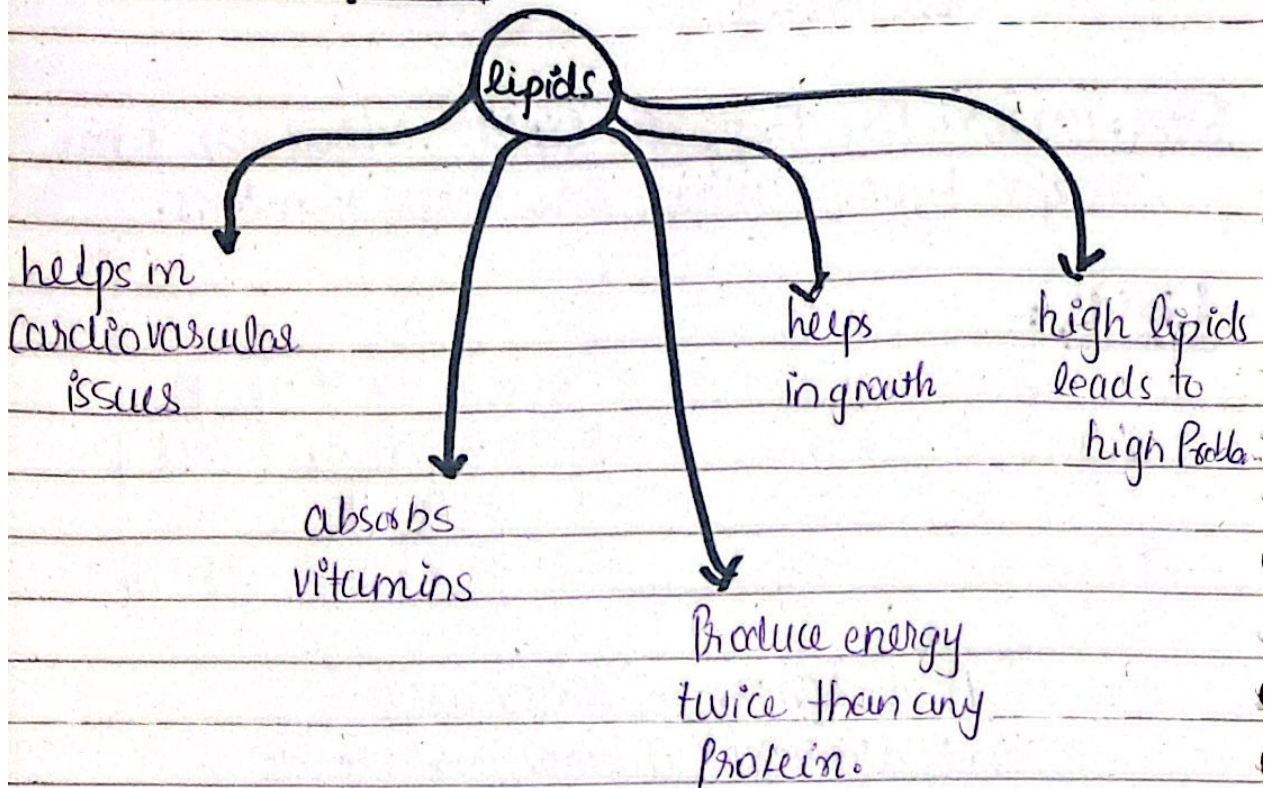 lipids
helps in
cardiovascular
issues
absorbs
vitamins
Produce energy
twice than any
Protein.
helps
in growth
high lipids
leads to
high